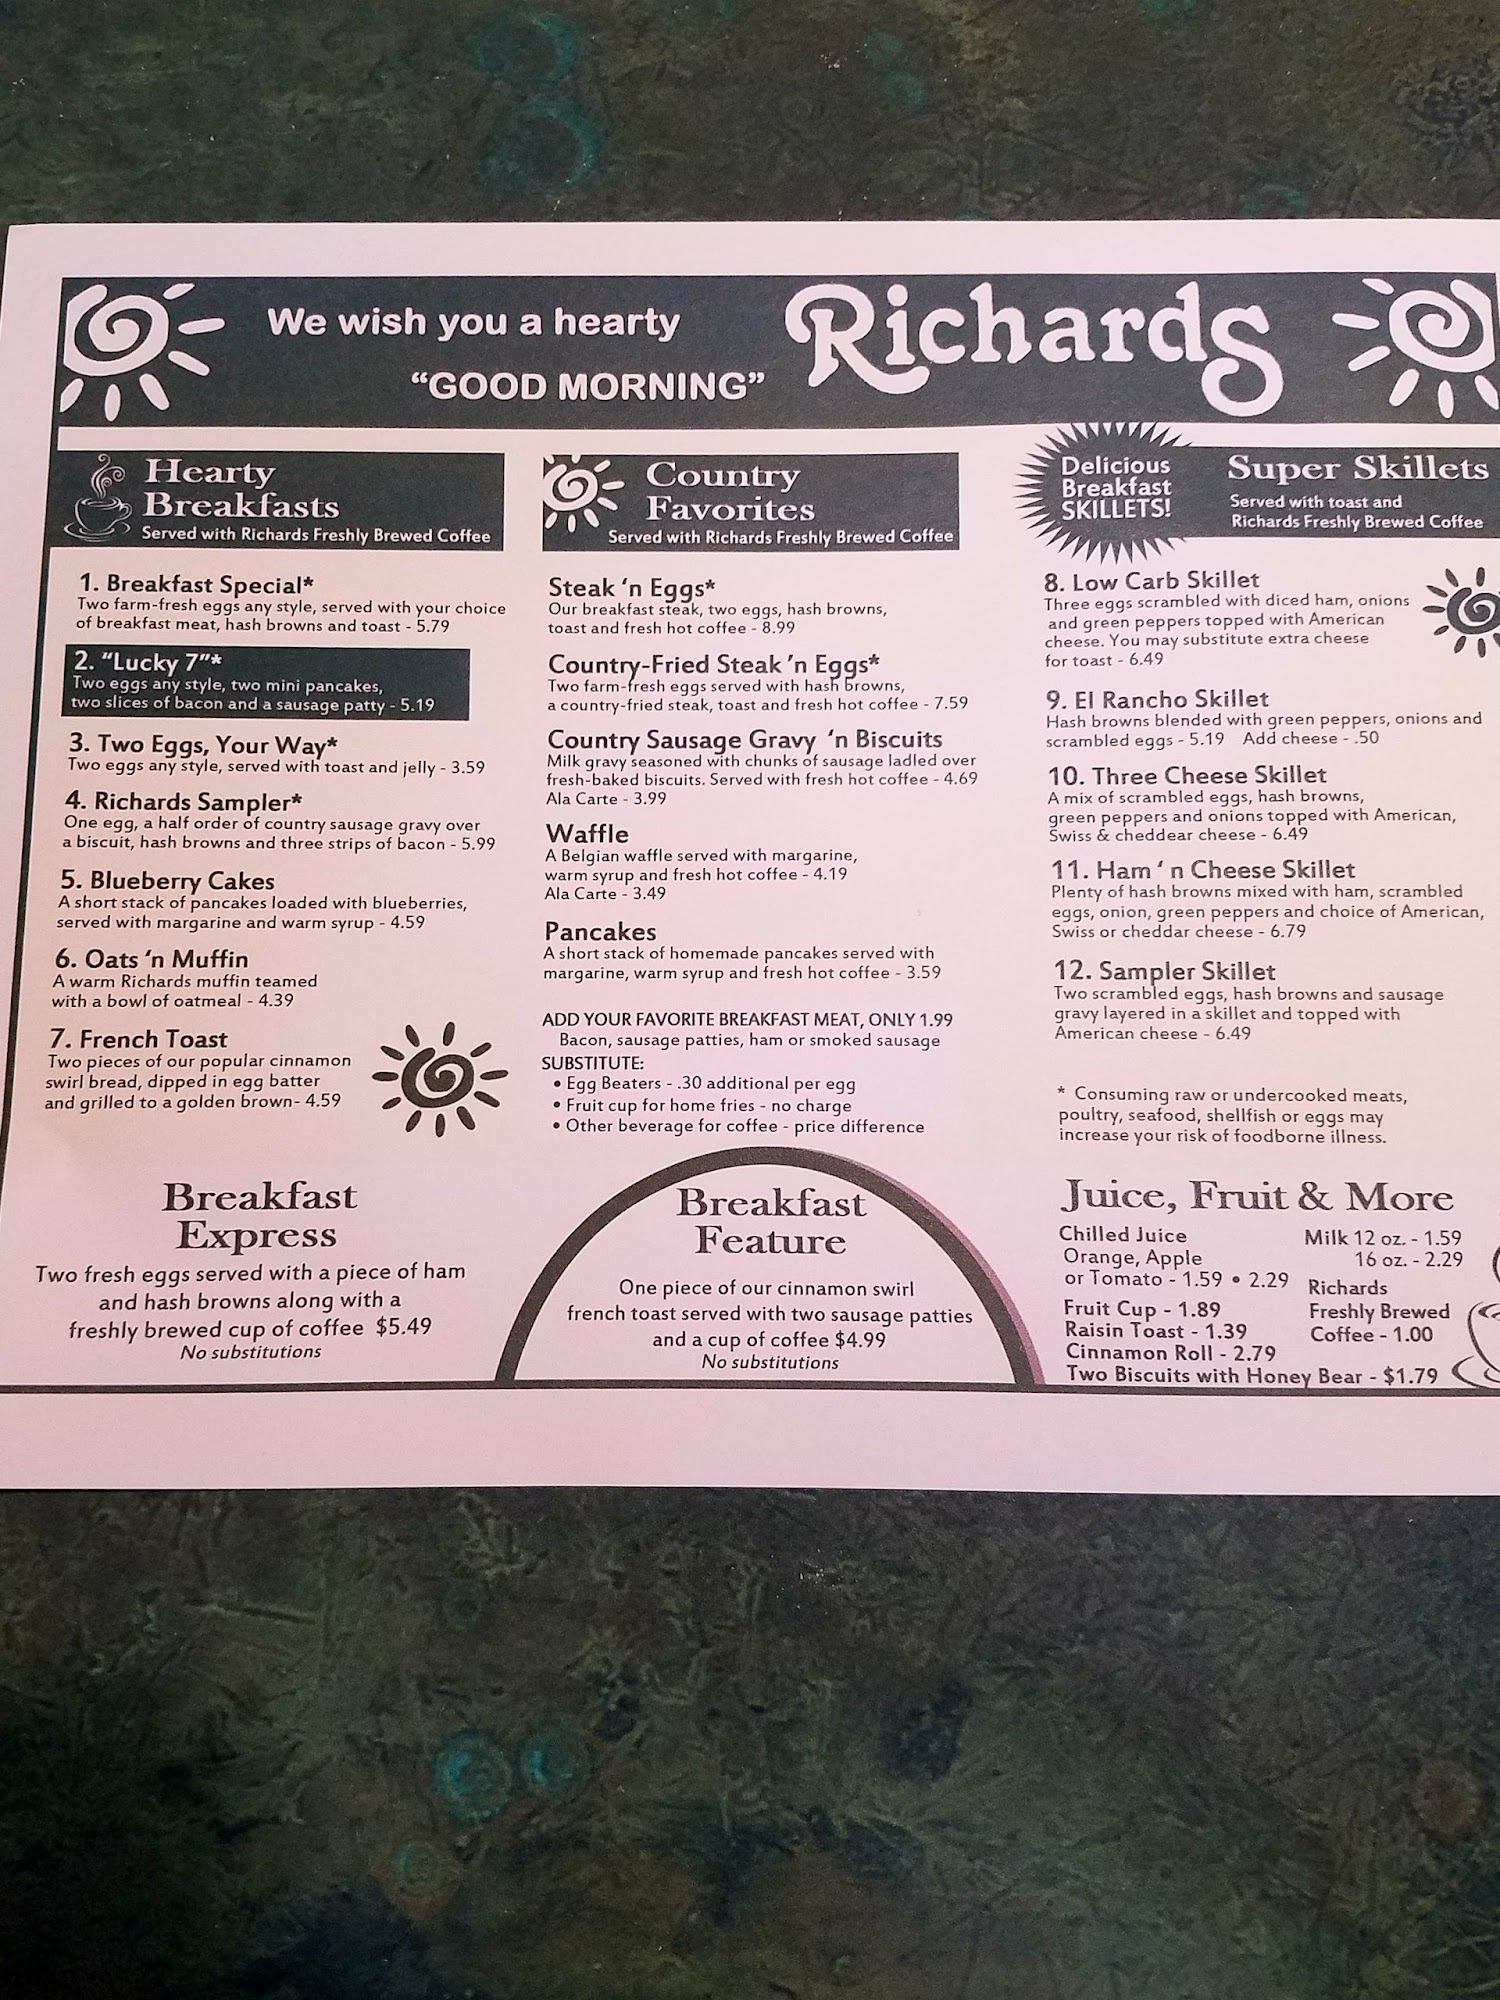 We wish you a hearty
"GOOD MORNING"
Richards
Hearty
Breakfasts
Served with Richards Freshly Brewed Coffee
1. Breakfast Special*
Two farm-fresh eggs any style, served with your choice
of breakfast meat, hash browns and toast - 5.79
2. "Lucky 7"*
Two eggs any style, two mini pancakes,
two slices of bacon and a sausage patty - 5.19
3. Two Eggs, Your Way*
Two eggs any style, served with toast and jelly - 3.59
4. Richards Sampler*
One egg, a half order of country sausage gravy over
a biscuit, hash browns and three strips of bacon - 5.99
5. Blueberry Cakes
A short stack of pancakes loaded with blueberries,
served with margarine and warm syrup - 4.59
6. Oats 'n Muffin
A warm Richards muffin teamed
with a bowl of oatmeal - 4.39
7. French Toast
Two pieces of our popular cinnamon
swirl bread, dipped in egg batter
and grilled to a golden brown- 4.59
Breakfast
Express
Two fresh eggs served with a piece of ham
and hash browns along with a
freshly brewed cup of coffee $5.49
No substitutions
Country
Favorites
Served with Richards Freshly Brewed Coffee
Steak 'n Eggs*
Our breakfast steak, two eggs, hash browns,
toast and fresh hot coffee - 8.99
Country-Fried Steak 'n Eggs*
Two farm-fresh eggs served with hash browns,
a country-fried steak, toast and fresh hot coffee - 7.59
Country Sausage Gravy 'n Biscuits
Milk gravy seasoned with chunks of sausage ladled over
fresh-baked biscuits. Served with fresh hot coffee - 4.69
Ala Carte - 3.99
Waffle
A Belgian waffle served with margarine,
warm syrup and fresh hot coffee - 4.19
Ala Carte - 3.49
Pancakes
A short stack of homemade pancakes served with
margarine, warm syrup and fresh hot coffee - 3.59
ADD YOUR FAVORITE BREAKFAST MEAT, ONLY 1.99
Bacon, sausage patties, ham or smoked sausage
SUBSTITUTE:
• Egg Beaters - .30 additional per egg
• Fruit cup for home fries - no charge
• Other beverage for coffee - price difference
Breakfast
Feature
One piece of our cinnamon swirl
french toast served with two sausage patties
and a cup of coffee $4.99
No substitutions
Delicious
Breakfast
SKILLETS!
Super Skillets
Served with toast and
Richards Freshly Brewed Coffee
8. Low Carb Skillet
Three eggs scrambled with diced ham, onions
and green peppers topped with American
cheese. You may substitute extra cheese
for toast - 6.49
9. El Rancho Skillet
Hash browns blended with green peppers, onions and
scrambled eggs - 5.19 Add cheese - .50
10. Three Cheese Skillet
A mix of scrambled eggs, hash browns,
green peppers and onions topped with American,
Swiss & cheddear cheese - 6.49
11. Ham ' n Cheese Skillet
Plenty of hash browns mixed with ham, scrambled
eggs, onion, green peppers and choice of American,
Swiss or cheddar cheese - 6.79
12. Sampler Skillet
Two scrambled eggs, hash browns and sausage
gravy layered in a skillet and topped with
American cheese - 6.49
* Consuming raw or undercooked meats,
poultry, seafood, shellfish or eggs may
increase your risk of foodborne illness.
Juice, Fruit & More
Chilled Juice
Orange, Apple
or Tomato - 1.59 • 2.29
Fruit Cup - 1.89
Raisin Toast - 1.39
Cinnamon Roll - 2.79
Two Biscuits with Honey Bear - $1.79
Milk 12 oz. - 1.59
16 oz. - 2.29
Richards
Freshly Brewed
Coffee - 1.00